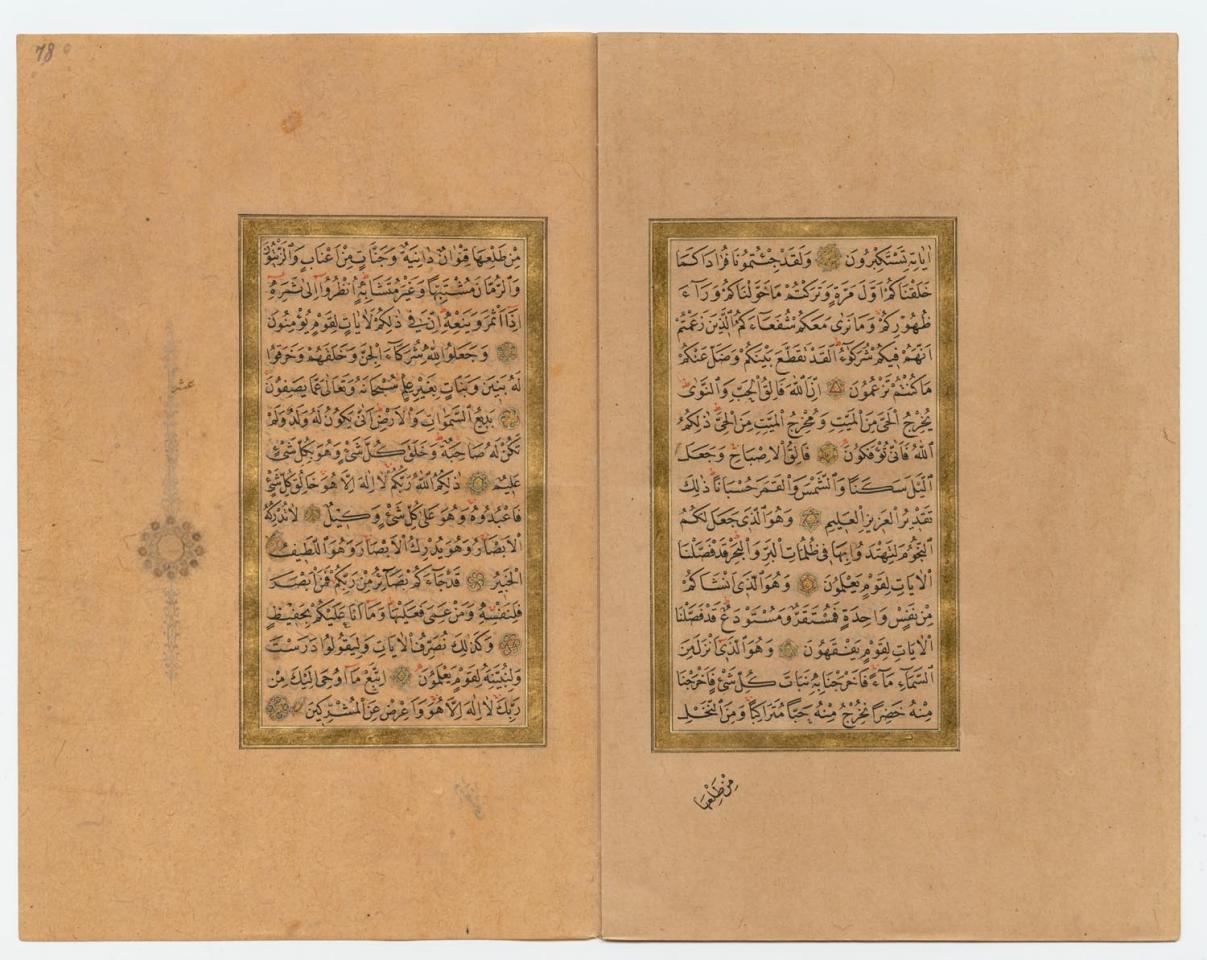 اٰيَاتِهِ تَسْتَكْبِرُونَ وَلَقَدْ جِئْتُمُونَا فُرَادٰى كَمَا
خَلَقْنَاكُمْ اَوَّلَ مَرَّةٍ وَتَرَكْتُمْ مَاخَوَّلْنَاكُمْ وَرَاۤءَ
ظُهُورِكُمْ وَمَا نَرٰى مَعَكُمْ شُفَعَاۤءَكُمُ الَّذِينَ زَعَمْتُمْ
اَنَّهُمْ فِيكُمْ شُرَكٰۤؤُا لَقَدْ تَقَطَّعَ بَيْنَكُمْ وَضَلَّ عَنْكُمْ
مَاكُنْتُمْ تَزْعُمُونَ اِنَّ اللّٰهَ فَالِقُ الْحَبِّ وَالنَّوٰى
يُخْرِجُ الْحَيَّ مِنَ الْمَيِّتِ وَمُخْرِجُ الْمَيِّتِ مِنَ الْحَيِّ ذٰلِكُمُ
اللّٰهُ فَاَنّٰى تُؤْفَكُونَ فَالِقُ الْاِصْبَاحِ وَجَعَلَ
الَّيْلَ سَكَنًا وَالشَّمْسَ وَالْقَمَرَ حُسْبَانًا ذٰلِكَ
تَقْدِيرُ الْعَزِيزِ الْعَلِيمِ وَهُوَ الَّذِي جَعَلَ لَكُمُ
النُّجُومَ لِتَهْتَدُوا بِهَا فِي ظُلُمَاتِ الْبَرِّ وَالْبَحْرِ قَدْ فَصَّلْنَا
الْاٰيَاتِ لِقَوْمٍ يَعْلَمُونَ وَهُوَ الَّذِي اَنْشَاَكُمْ
مِنْ نَفْسٍ وَاحِدَةٍ فَمُسْتَقَرٌّ وَمُسْتَوْدَعٌ قَدْ فَصَّلْنَا
الْاٰيَاتِ لِقَوْمٍ يَفْقَهُونَ وَهُوَ الَّذِي اَنْزَلَ مِنَ
السَّمَاۤءِ مَاۤءً فَاَخْرَجْنَا بِهِ نَبَاتَ كُلِّ شَيْءٍ فَاَخْرَجْنَا
مِنْهُ خَضِرًا نُخْرِجُ مِنْهُ حَبًّا مُتَرَاكِبًا وَمِنَ النَّخْلِ
مِنْ طَلْعِهَا
78
مِنْ طَلْعِهَا قِنْوَانٌ دَانِيَةٌ وَجَنَّاتٍ مِنْ اَعْنَابٍ وَالزَّيْتُونَ
وَالرُّمَّانَ مُشْتَبِهًا وَغَيْرَ مُتَشَابِهٍ اُنْظُرُوا اِلٰى ثَمَرِهِ
اِذَا اَثْمَرَ وَيَنْعِهِ اِنَّ فِي ذٰلِكُمْ لَاٰيَاتٍ لِقَوْمٍ يُؤْمِنُونَ
وَجَعَلُوا لِلّٰهِ شُرَكَاۤءَ الْجِنَّ وَخَلَقَهُمْ وَخَرَقُوا
لَهُ بَنِينَ وَبَنَاتٍ بِغَيْرِ عِلْمٍ سُبْحَانَهُ وَتَعَالٰى عَمَّا يَصِفُونَ
بَدِيعُ السَّمٰوَاتِ وَالْاَرْضِ اَنّٰى يَكُونُ لَهُ وَلَدٌ وَلَمْ
تَكُنْ لَهُ صَاحِبَةٌ وَخَلَقَ كُلَّ شَيْءٍ وَهُوَ بِكُلِّ شَيْءٍ
عَلِيمٌ ذٰلِكُمُ اللّٰهُ رَبُّكُمْ لَا اِلٰهَ اِلَّا هُوَ خَالِقُ كُلِّ شَيْءٍ
فَاعْبُدُوهُ وَهُوَ عَلٰى كُلِّ شَيْءٍ وَكِيلٌ لَا تُدْرِكُهُ
الْاَبْصَارُ وَهُوَ يُدْرِكُ الْاَبْصَارَ وَهُوَ اللَّطِيفُ
الْخَبِيرُ قَدْ جَاۤءَكُمْ بَصَاۤئِرُ مِنْ رَبِّكُمْ فَمَنْ اَبْصَرَ
فَلِنَفْسِهِ وَمَنْ عَمِيَ فَعَلَيْهَا وَمَا اَنَا عَلَيْكُمْ بِحَفِيظٍ
وَكَذٰلِكَ نُصَرِّفُ الْاٰيَاتِ وَلِيَقُولُوا دَرَسْتَ
وَلِنُبَيِّنَهُ لِقَوْمٍ يَعْلَمُونَ اِتَّبِعْ مَا اُوحِيَ اِلَيْكَ مِنْ
رَبِّكَ لَا اِلٰهَ اِلَّا هُوَ وَاَعْرِضْ عَنِ الْمُشْرِكِينَ